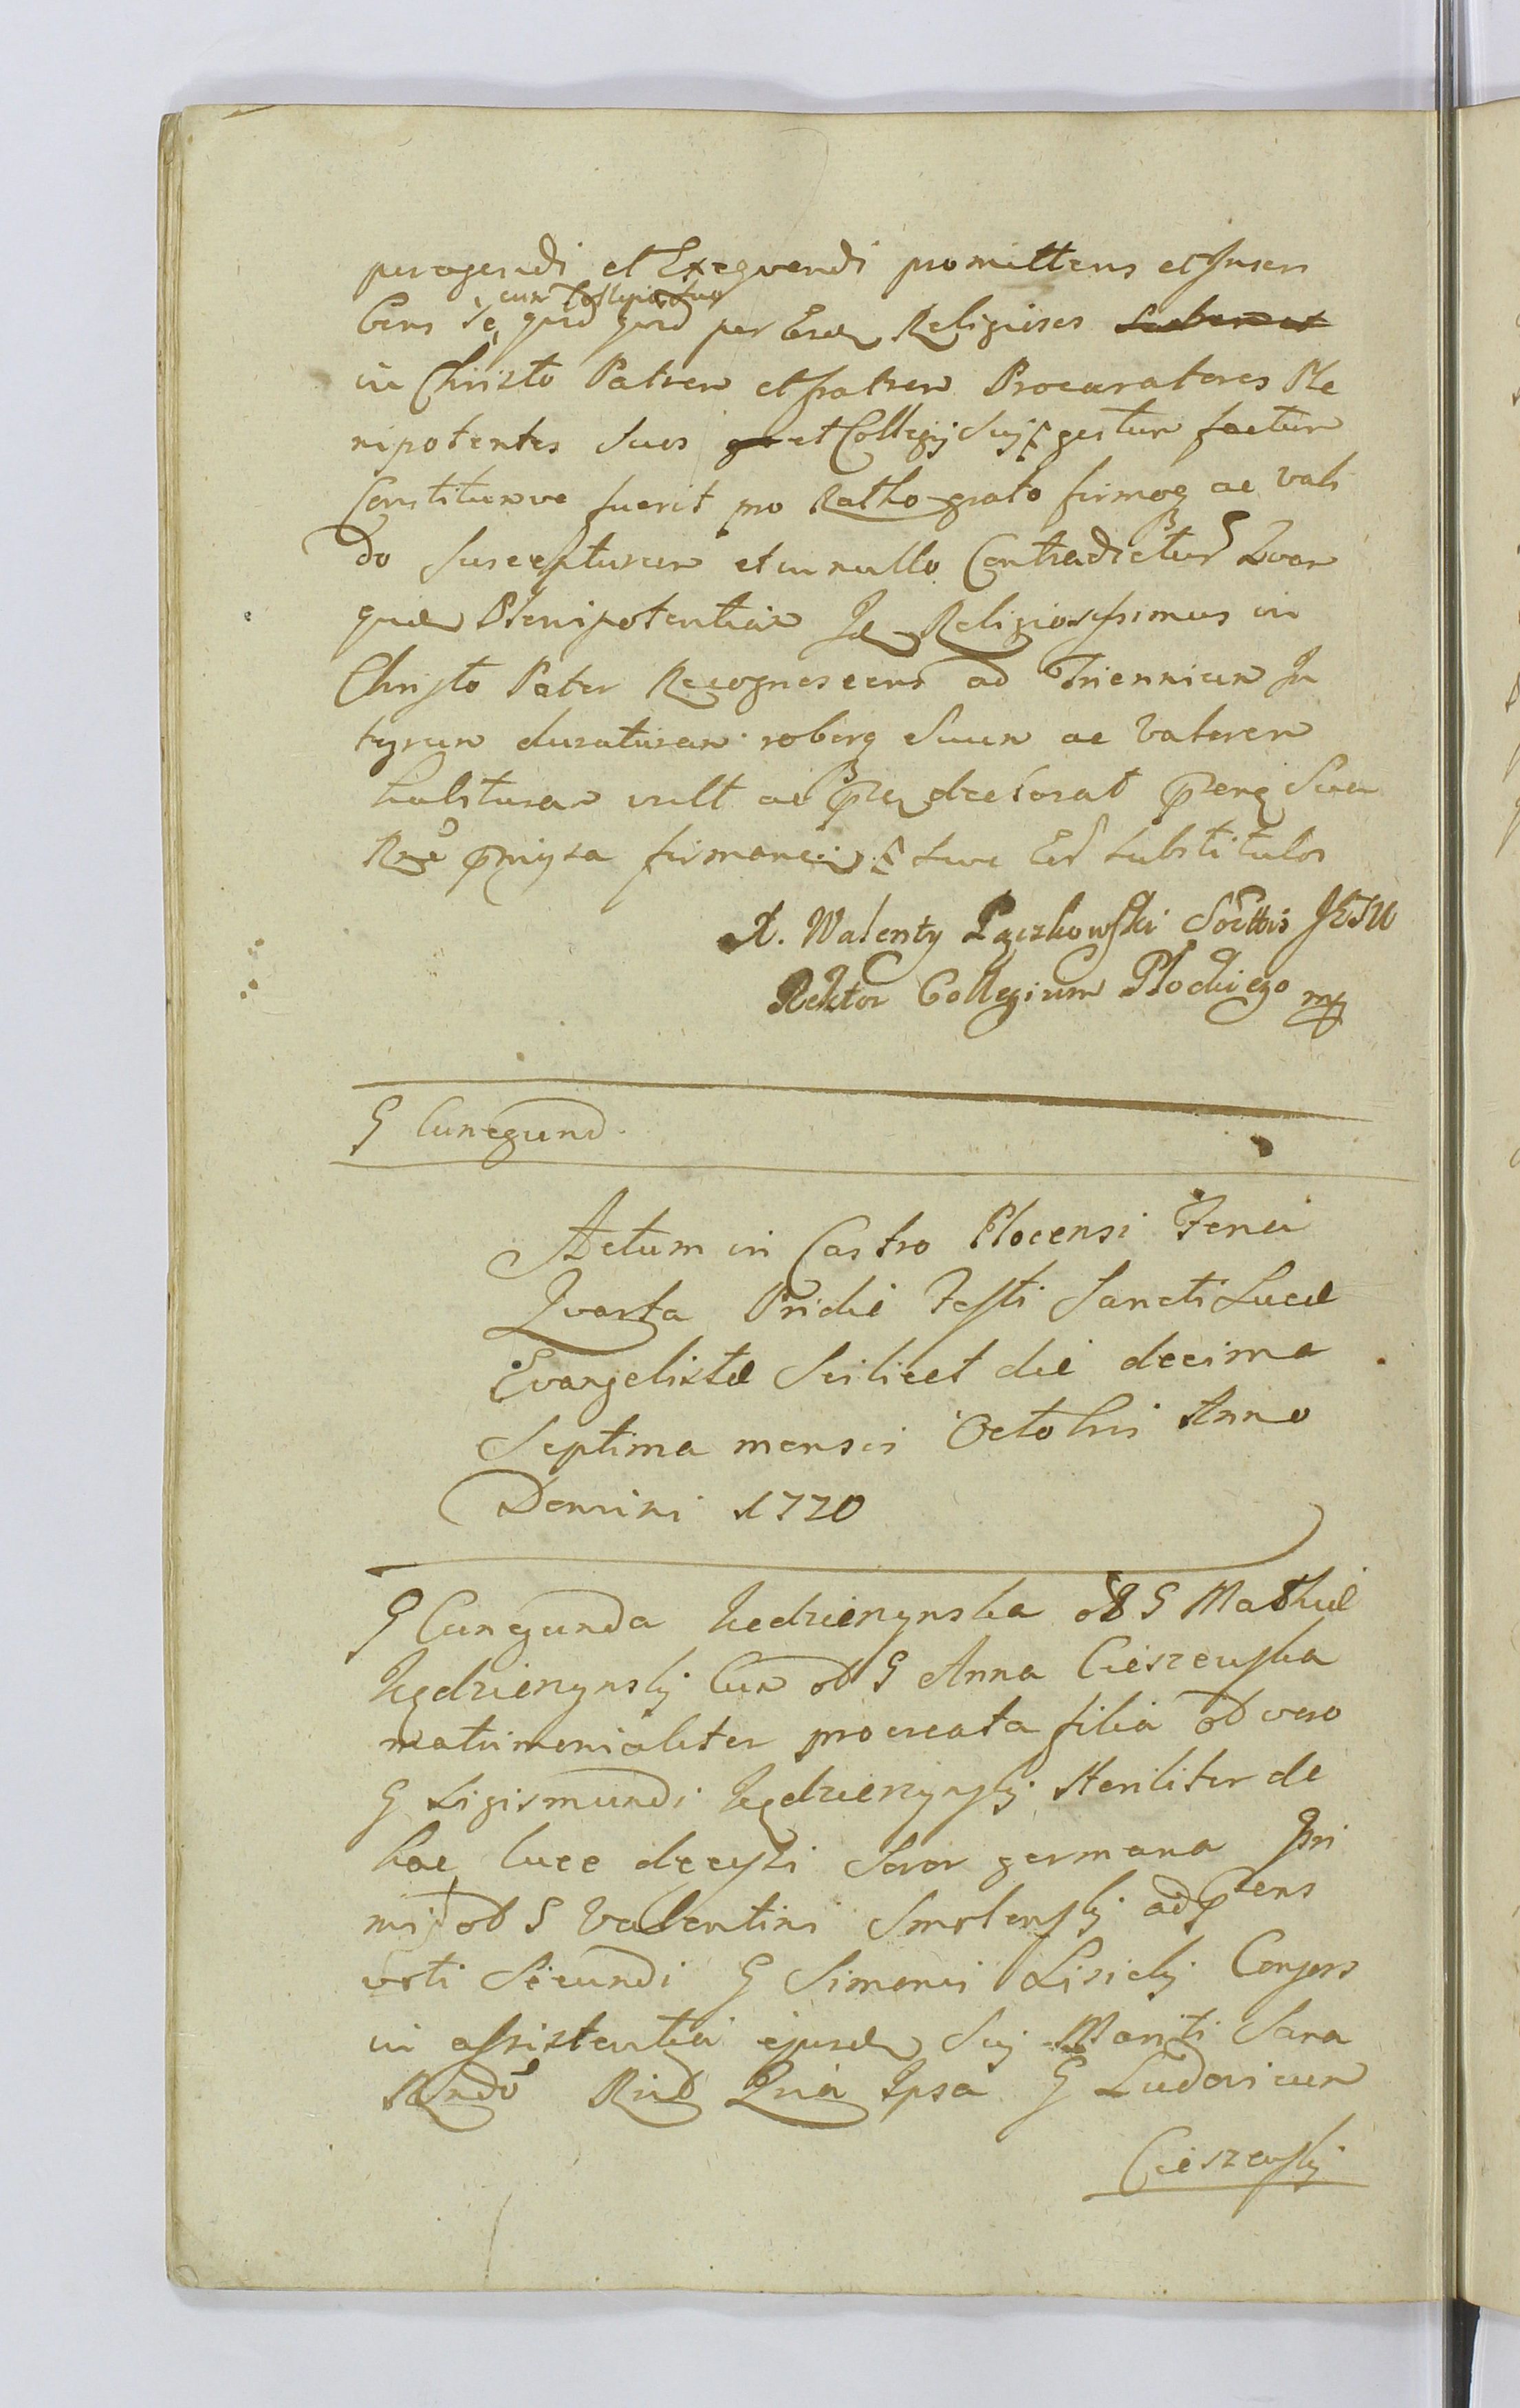 peragendi et Exequendi promittens et Inscri
bens se cum Collegio suo quid quid per Eosd Religiosos
in Christo Patrem et fratrem Procuratores Ple
nipotentes suos et Collegij Suij gestum factum
Constitumve fuerit pro Ratho grato firmoq ac vali
do suscepturum et in nullo Contradictur Quam
quid Plenipotentiam Id Religiosissimus in
Christo Pater Recognoscens ad Triennium In
tegrum duraturam roborq suum ac valorem
habituram vult ac declarat Sua
Rne pmissa firmand salve Eid substitulos
X. Walenty Pączkowski Socttis JESU
Rektor Collegium Płockiego mp
G Cunegund
Actum in Castro Plocensi Feria
Quarta Pridie Festi Sancti Lucæ
Evangelistæ Scilicet die decima
Septima mensis Octobris Anno
Domini 1770
G Cunegunda Kędzierzynska olb G Mathiæ
Kędzierzynskj Cum olb G Anna Cieszewska
matrimonialiter procreata filia olb vero
G Sigismundi Kędzierzynskj steriliter de
hac luce decessi Soror germana Pri
mi olb G Valentini Smolenskj adpens
voti Secundi G Simonis Lisickj Conjors
in assistentia ejusd Suj Mariti Sana
Rndo Quia Ipsa G Ludovicum
Cieszewskj